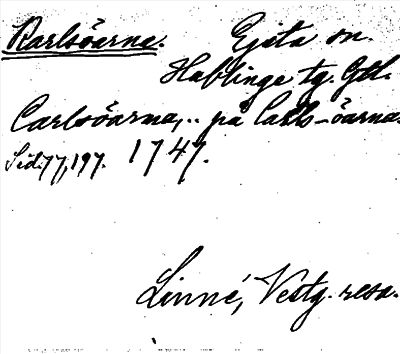 Karlsöarna. Ejsta sn.
Hablinge tg. Gtl.
Carlsöarna,.. på Carls-öarna.
Sid. 77, 197. 1747.
Linné, Vestg. resa.